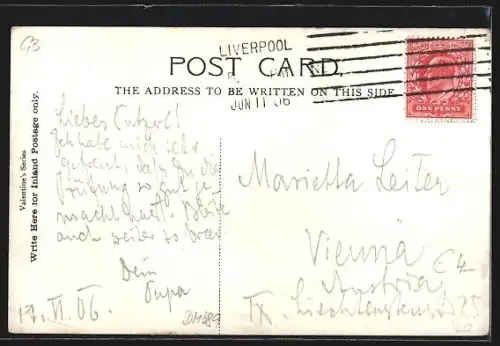 G3
LIVERPOOL
JUN 11 06
POST CARD.
THE ADDRESS TO BE WRITTEN ON THIS SIDE.
ONE PENNY
Valentine's Series
Write Here for Inland Postage only.
Liebes
Ich habe mich sehr
gefreut, daß Du die
Prüfung so gut ge-
macht hast. Bleibe
auch weiter so brav.
Dein
Onpa
17. VI 06.
DM489
Marietta Leiter
Vienna
Austria
IX. Liechtensteinstr 25